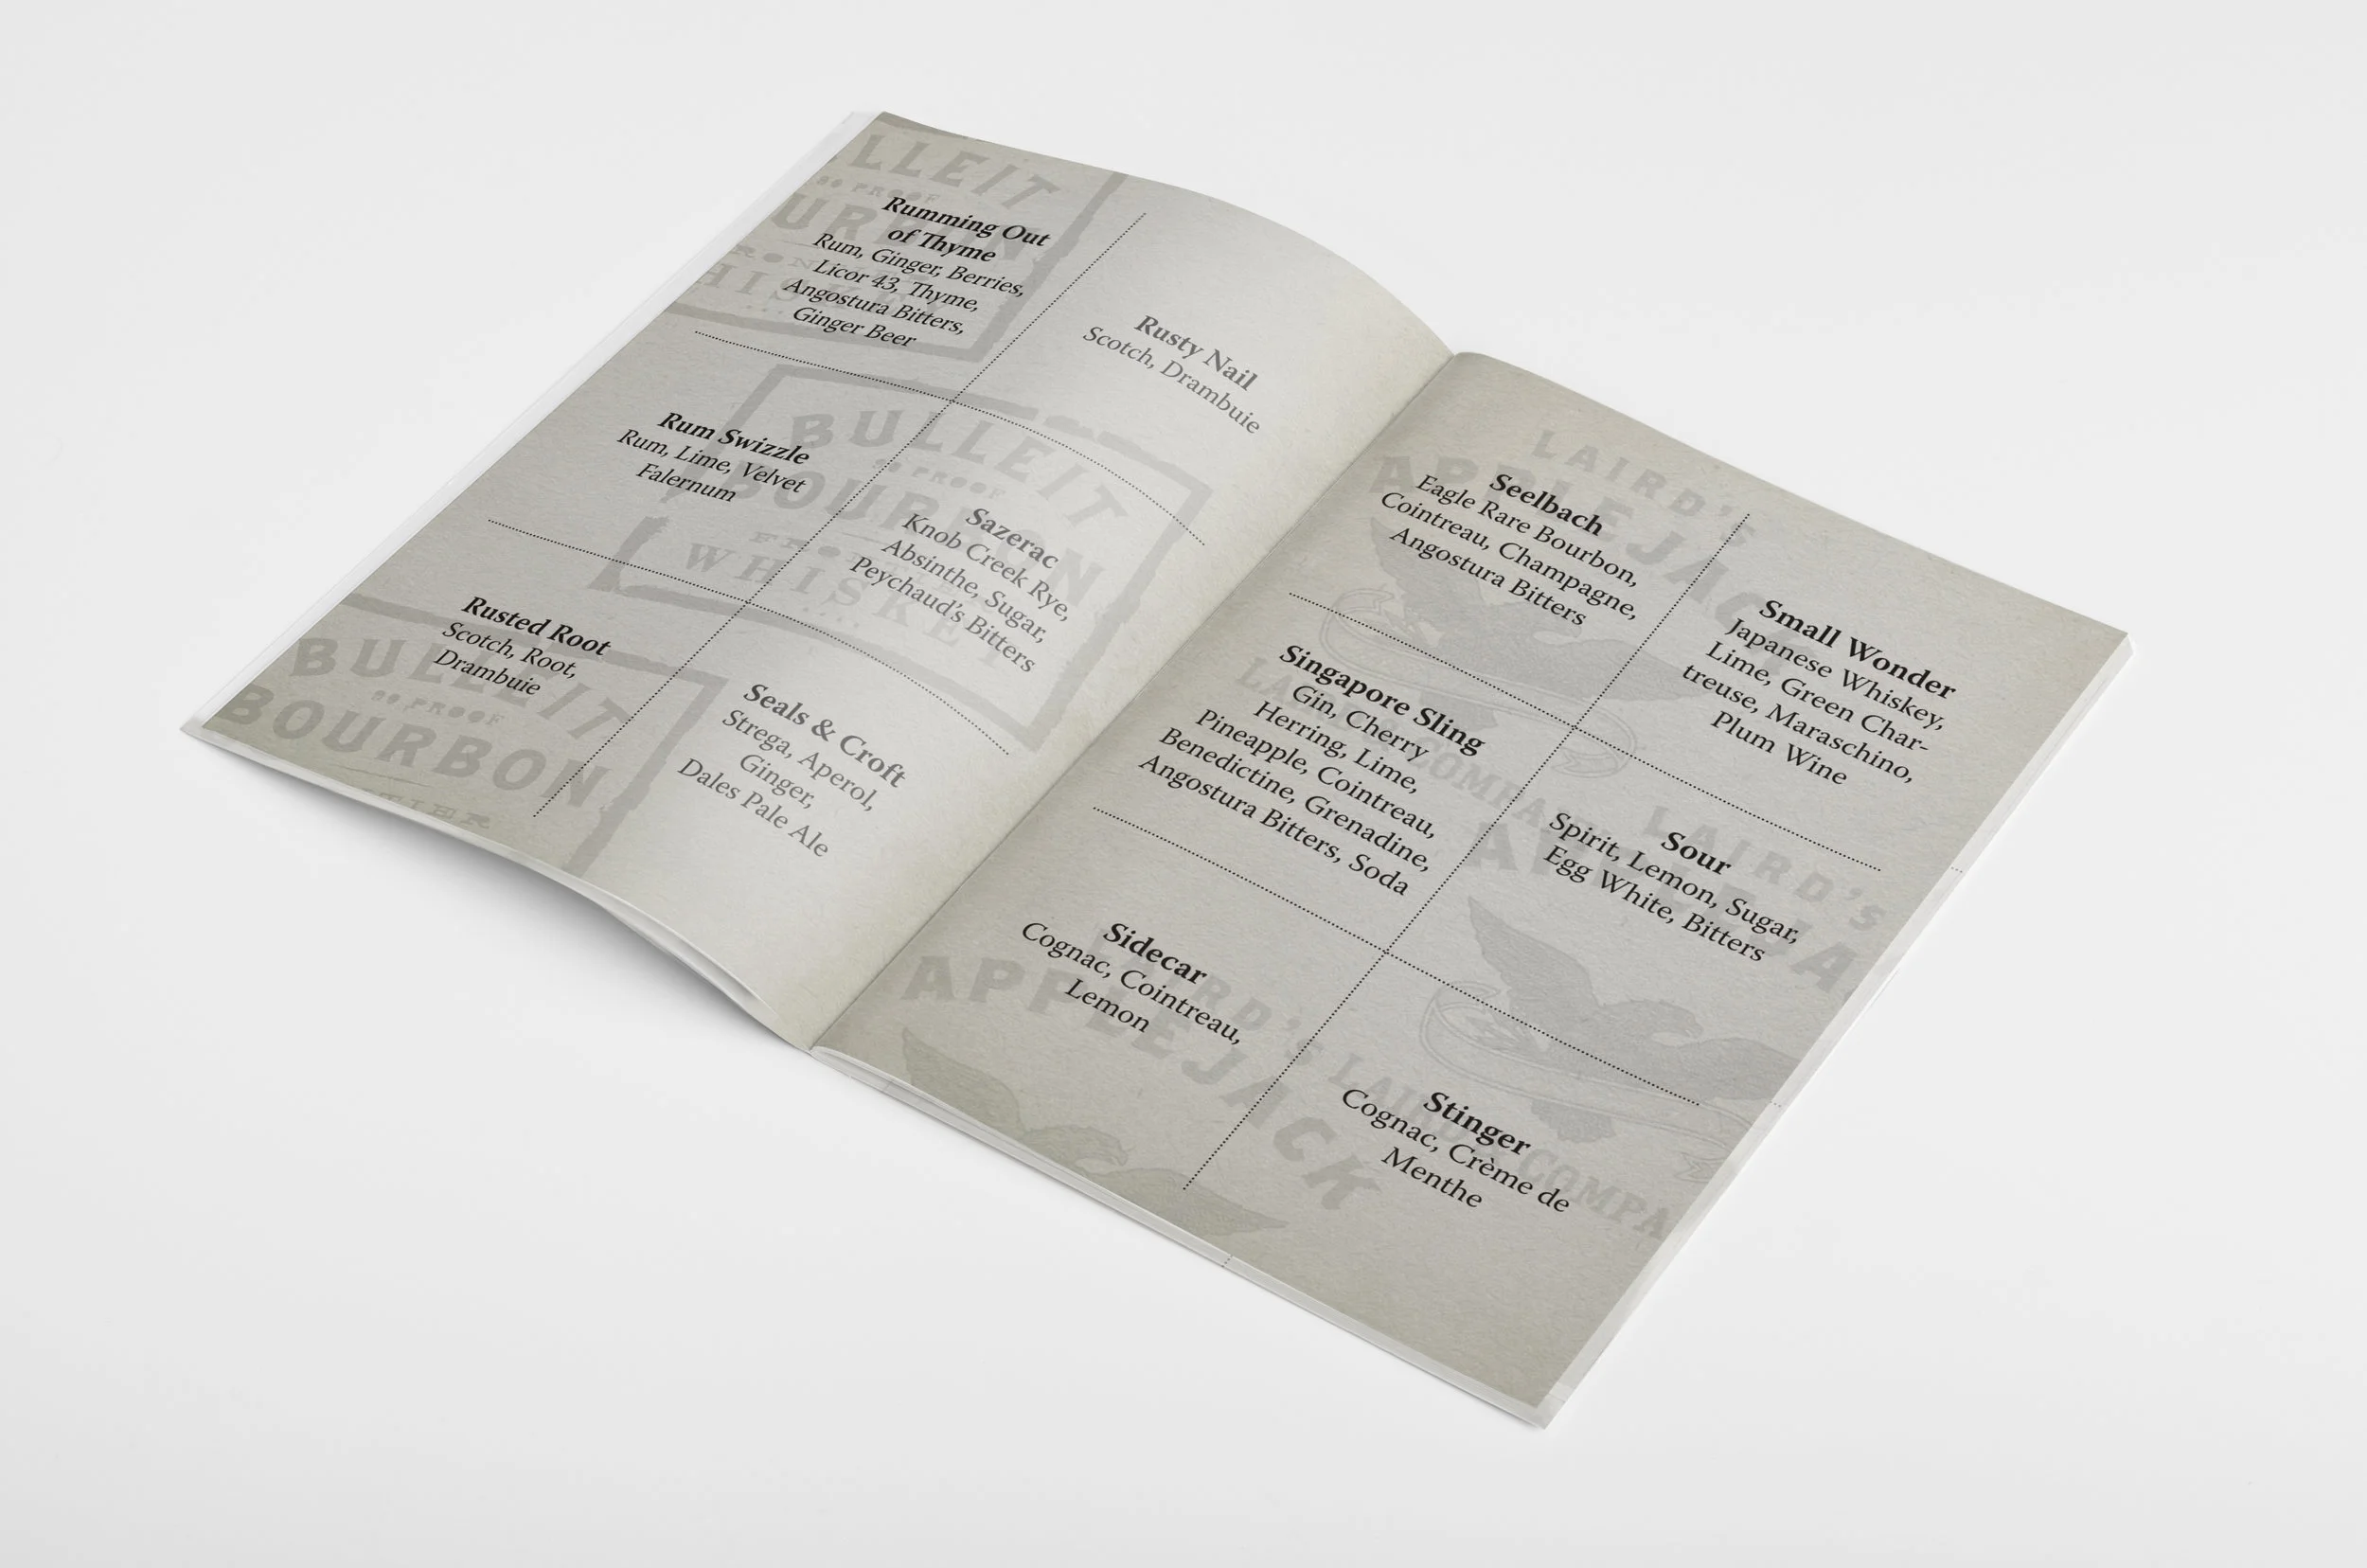 Rumming Out
of Thyme
Rum, Ginger, Berries,
Licor 43, Thyme,
Angostura Bitters,
Ginger Beer
Rusty Nail
Scotch, Drambuie
Rum Swizzle
Rum, Lime, Velvet
Falernum
Sazerac
Knob Creek Rye,
Absinthe, Sugar,
Peychaud's Bitters
Rusted Root
Scotch, Root,
Drambuie
Seals & Croft
Strega, Aperol,
Ginger,
Dales Pale Ale
LLEIT
80 PROOF
URBON
BULLEIT
PROOF
BOURBON
WHISKEY
BULLEIT
80 PROOF
BOURBON
Seelbach
Eagle Rare Bourbon,
Cointreau, Champagne,
Angostura Bitters
Small Wonder
Japanese Whiskey,
Lime, Green Char-
treuse, Maraschino,
Plum Wine
Singapore Sling
Gin, Cherry
Herring, Lime,
Pineapple, Cointreau,
Benedictine, Grenadine,
Angostura Bitters, Soda
Sour
Spirit, Lemon, Sugar,
Egg White, Bitters
Sidecar
Cognac, Cointreau,
Lemon
Stinger
Cognac, Crème de
Menthe
LAIRD'S
APPLEJACK
LAIRD'S
APPLEJACK